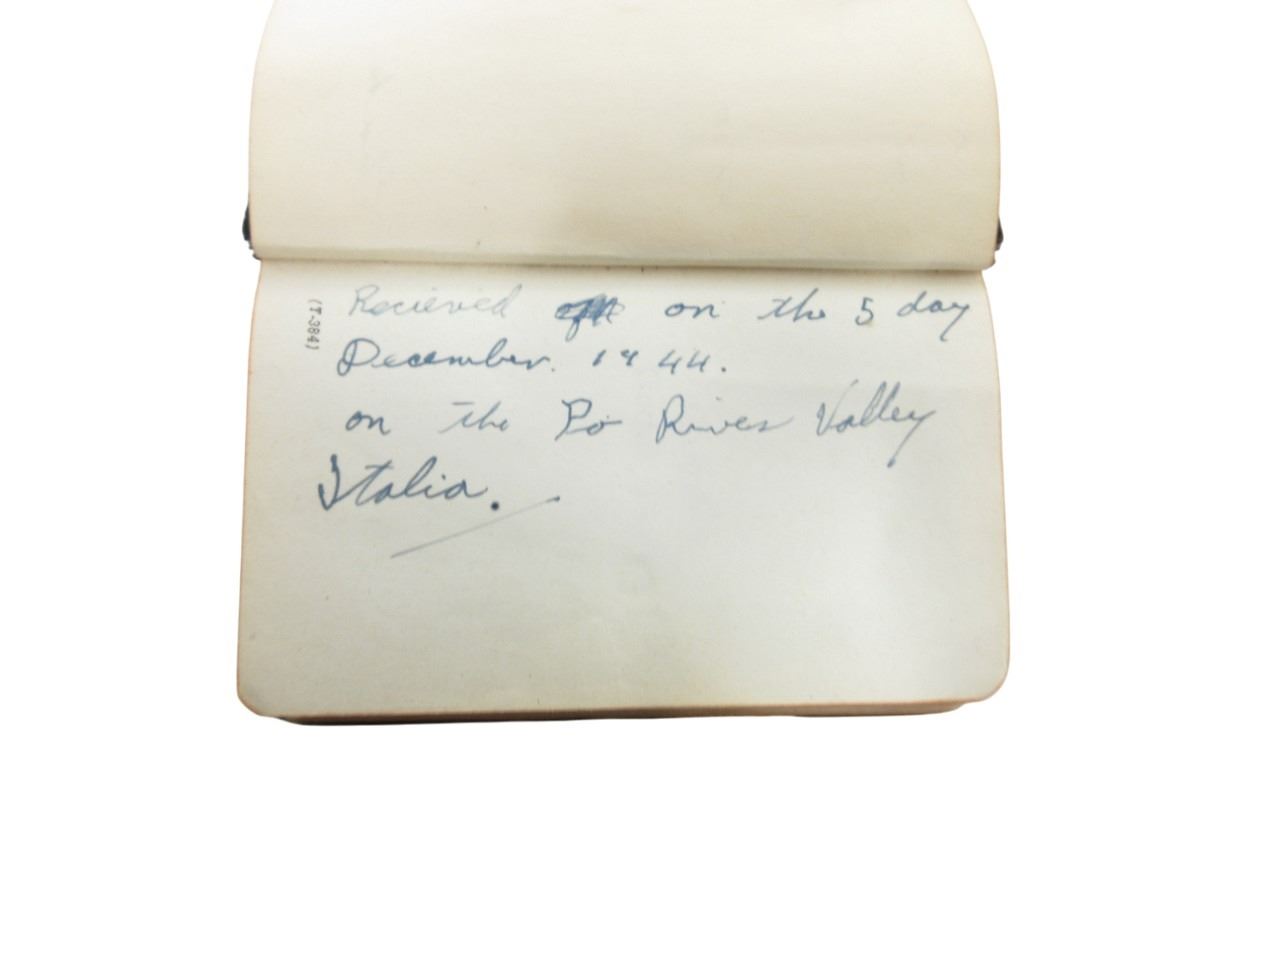 (T-384)
Recieved on the 5 day
December. 1944.
on the Po River Valley
Italia.